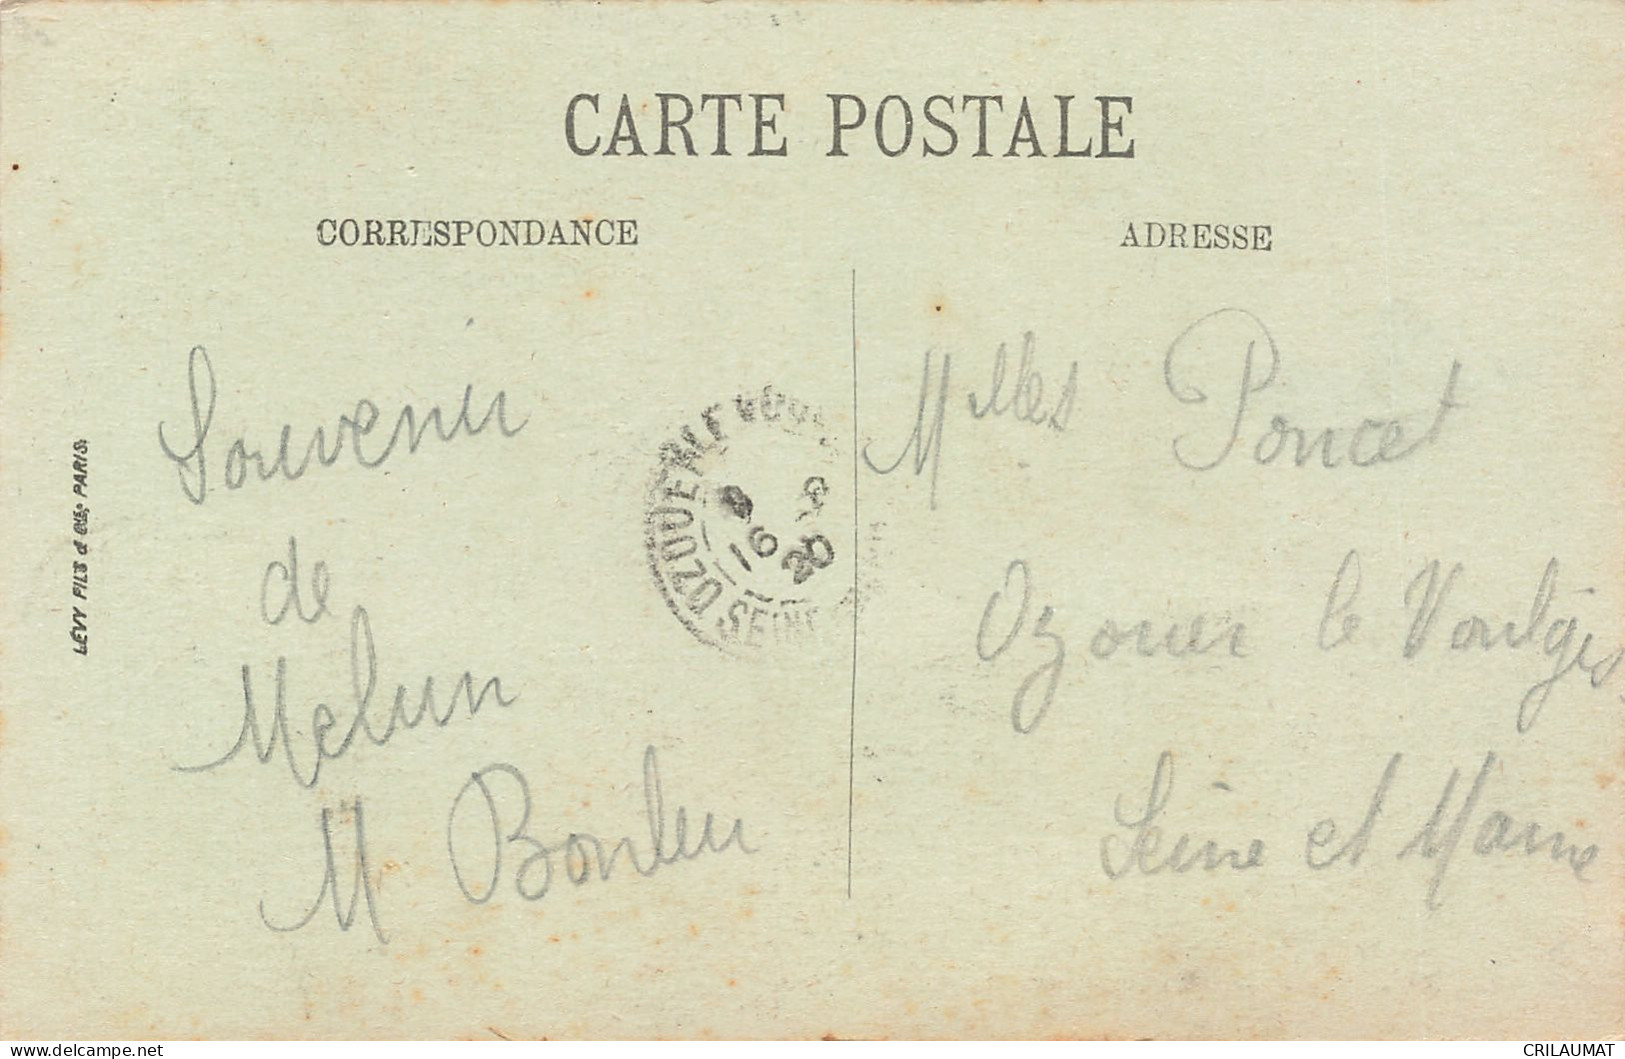 CARTE POSTALE
CORRESPONDANCE
ADRESSE
Souvenir
de
Melun
M
Milles Poncet
Ozouer le Voulgis
Seine et Marne
OZOUER LE VOUL
8
16 9
20
SEINE
LÉVY FILS & Cie, PARIS.
delcampe.net
CRILAUMAT